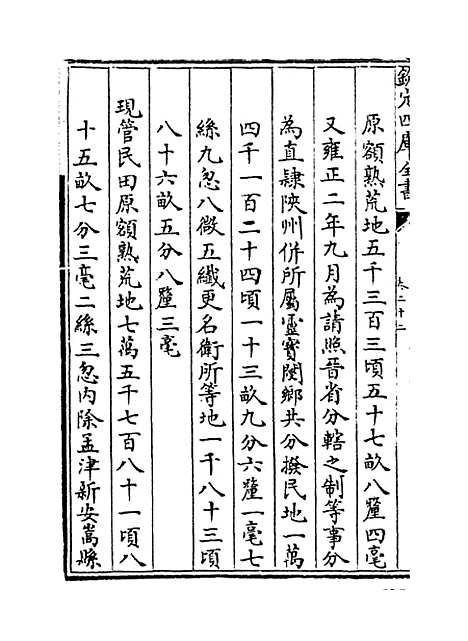 欽定四庫全書
卷二十二
原額熟荒地五千三百三頃五十七畝八釐四毫
又雍正二年九月為請照晉省分轄之制等事分
為直隸陜州併所屬靈寶閿鄉共分撥民地一萬
四千一百二十四頃一十三畝九分六釐一毫七
絲九忽八微五纖更名衛所等地一千八十三頃
八十六畝五分八釐三毫
現管民田原額熟荒地七萬五千七百八十一頃八
十五畝七分三毫二絲三忽內除孟津新安嵩縣